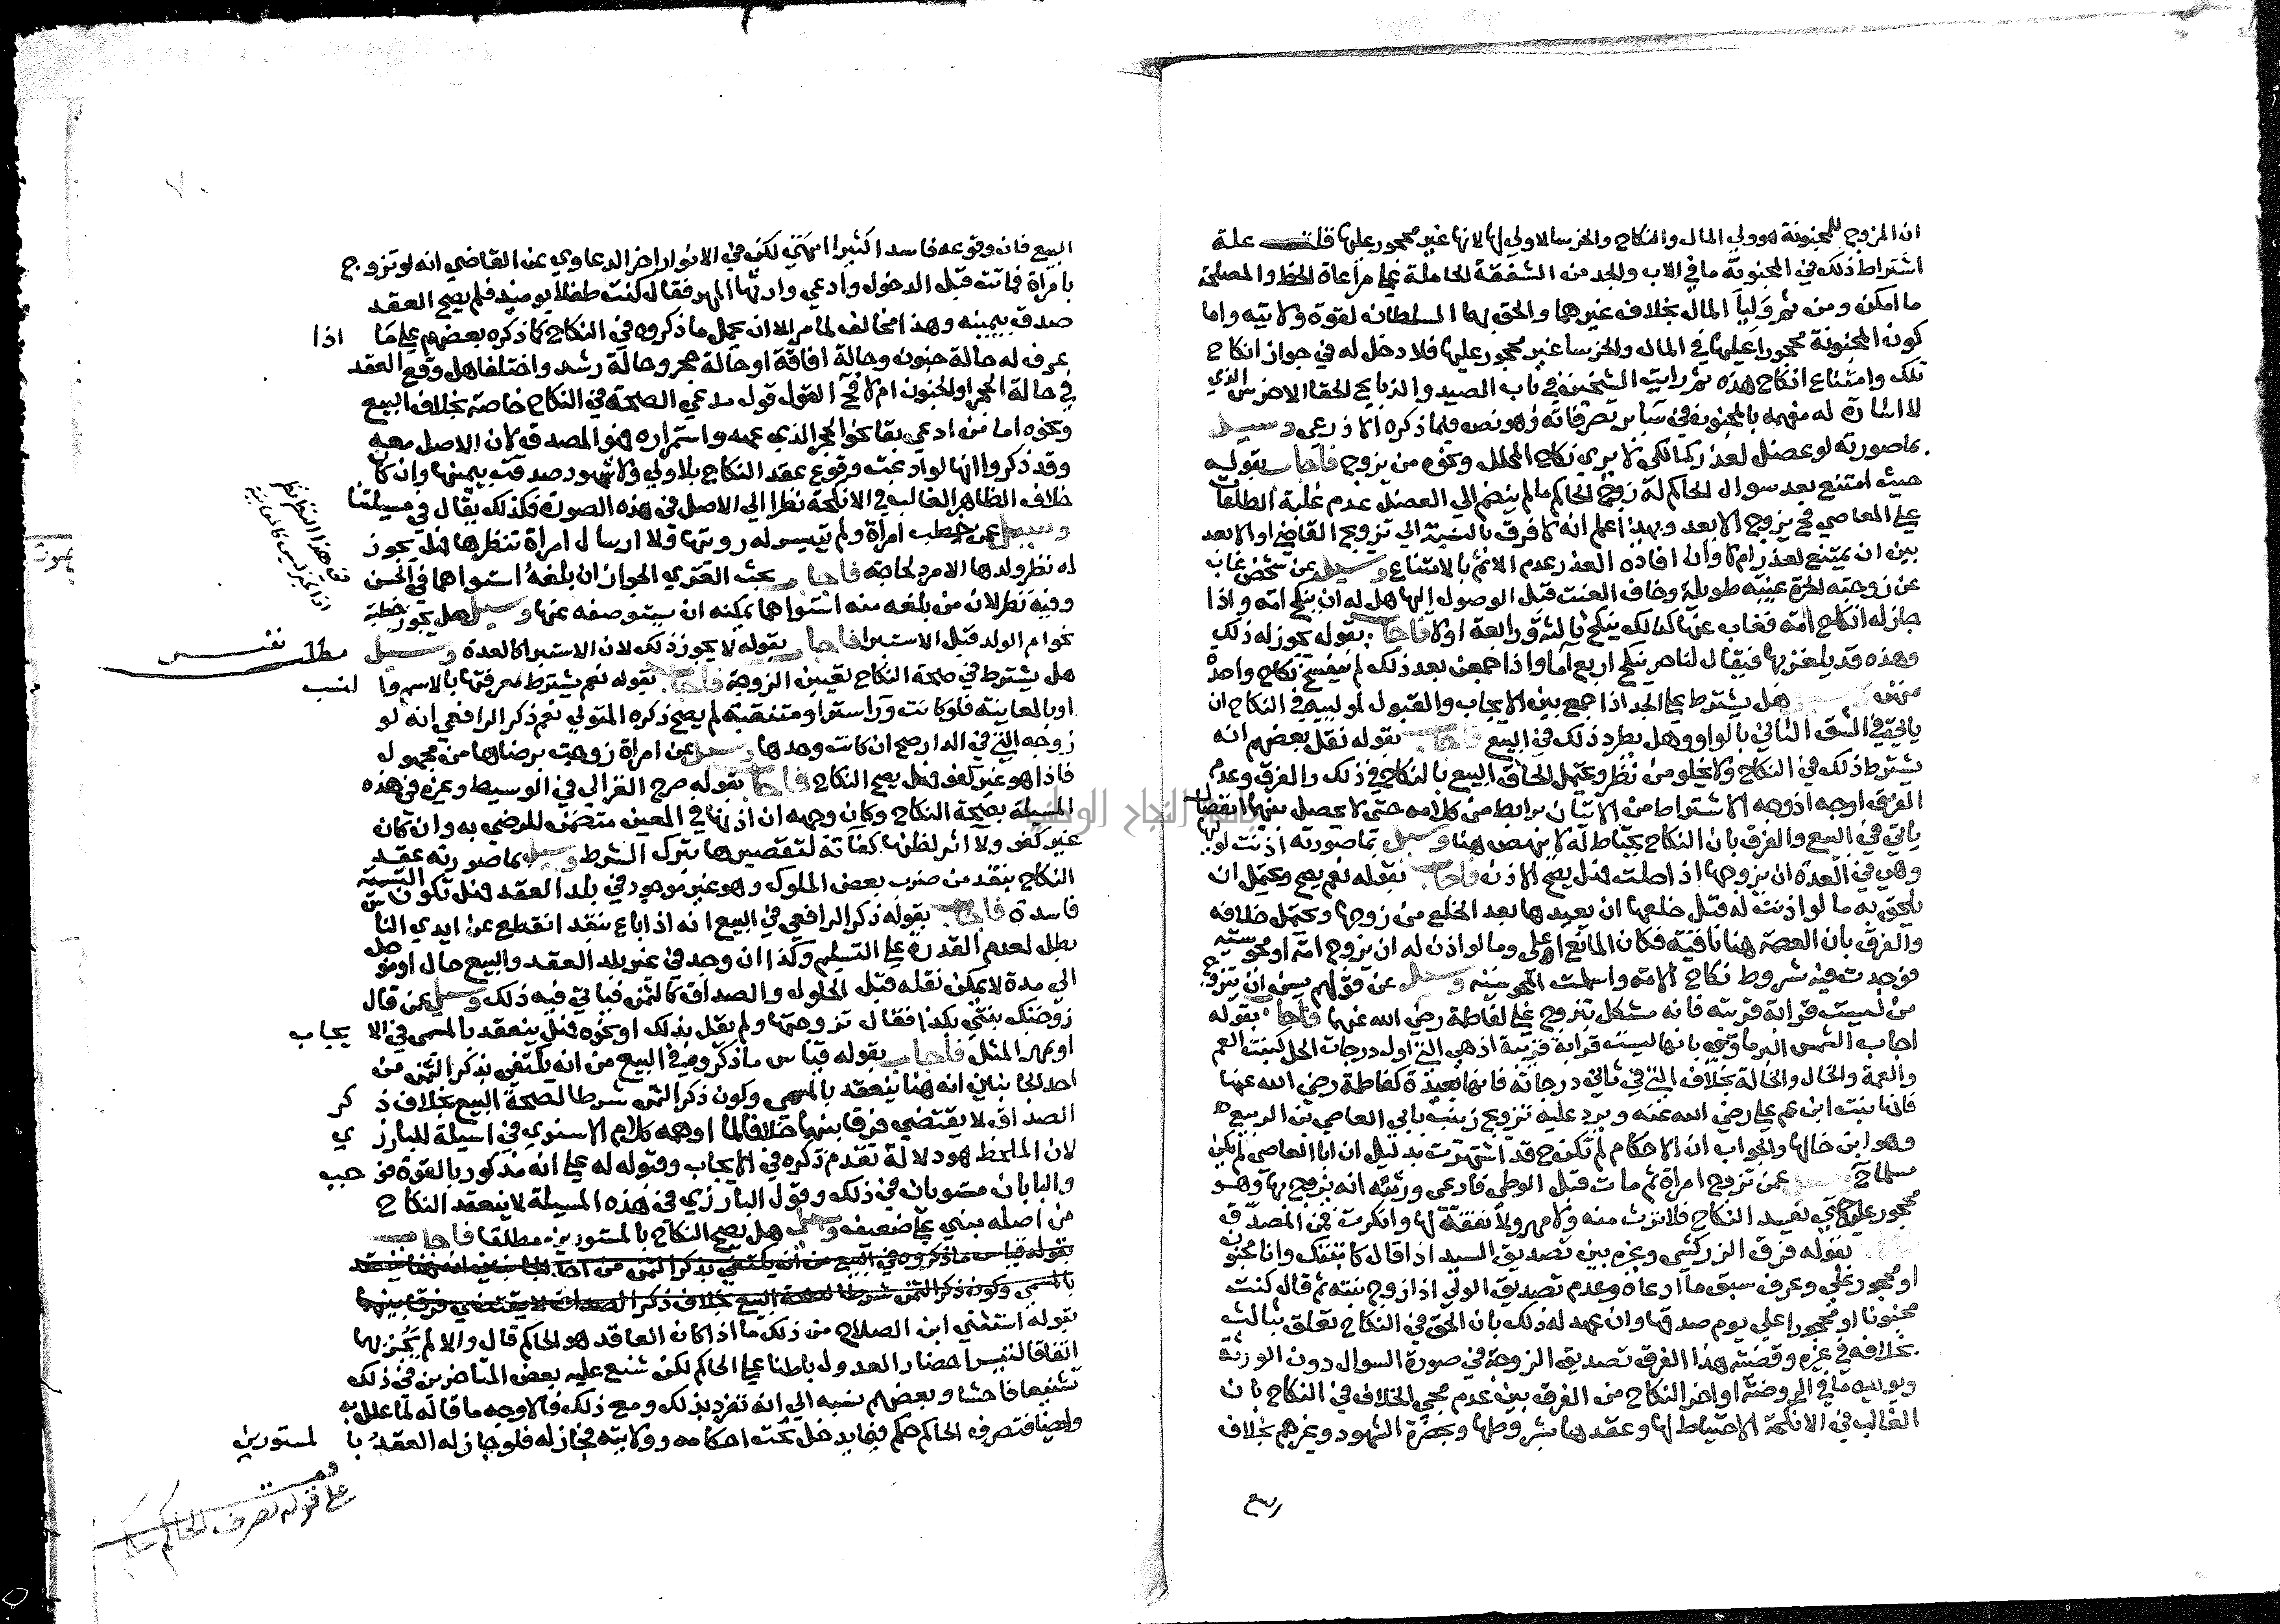 ان المزوج للمجنونة هو ولي المال والنكاح والخرسا لا ولي لها لانها غير محجور عليها قلت علة
اشتراط ذلك في المجنونة ما في الاب والجد من الشفقة الحاملة على مراعاة الحظ والمصلحة
ما امكن ومن ثم وليا المال بخلاف غيرهما والحق بهما السلطان لقوة ولايته واما
كون المجنونة محجورا عليها في المال والخرسا غير محجور عليها فلا دخل له في جواز انكاح
تلك وامتناع انكاح هذه ثم رايت الشيخين في باب الصيد والذبايح الحقا الاخرس الذي
لا اشارة له مفهمة بالمجنون في ساير تصرفاته وهو نص فيما ذكره الاذرعي وسيل
بما صورته لو عضل لعذر كمالكي لا يري نكاح المحلل ونحوه من يزوج فاجاب بقوله
حيث امتنع بعد سوال الحاكم له زوج الحاكم ما لم ينضم الي العضل عدم غلبة الطاعات
على المعاصي فح يزوج الابعد وبهذا علم انه لا فرق بالنسبة الي تزويج القاضي او الابعد
بين ان يمتنع لعذر ام لا وان افاده العذر عدم الاثم بالامتناع وسيل عن شخص غاب
عن زوجته الحرة غيبة طويلة وخاف العنت قبل الوصول اليها هل له ان ينكح امة واذا
جاز له انكاح امة فغاب عنها كذلك ينكح ثالثة ورابعة او لا فاجاب بقوله يجوز له ذلك
وهذه قد يلغز بها فيقال لنا حر ينكح اربع اما واذا جمعن بعد ذلك لم ينفسخ نكاح واحدة
منهن وسيل هل يشترط على الجد اذا جمع بين الايجاب والقبول لموليه في النكاح ان
ياتي في الشق الثاني بالواو وهل يطرد ذلك في البيع فاجاب بقوله نقل بعضهم انه
يشترط ذلك في النكاح ولا يخلو من نظر ويحتمل الحاق البيع بالنكاح في ذلك والفرق وعدم
الفرق اوجه اذ وجه الاشتراط من الاتيان برابط من كلامه حتى لا يحصل بينهما انفصال
ياتي في البيع والفرق بان النكاح يحتاط له لا ينهض هنا وسيل بما صورته اذنت لوليها
وهي في العدة ان يزوجها اذا حلت هل يصح الاذن فاجاب بقوله نعم يصح ويحتمل ان
يلحق به ما لو اذنت له قبل خلعها ان يعيدها بعد الخلع من زوجها ويحتمل خلافه
والفرق بان العصمة هنا نافية فكان المانع اعلى وما لو اذن له ان يزوج امة او مجوسية
فوجدت فيه شروط نكاح الامة واسلمت المجوسية وسيل عن قولهم يسن ان يتزوج
من ليست قرابة قريبة فانه مشكل بتزوج علي لفاطمة رضي الله عنهما فاجاب بقوله
اجاب الشمس البرماوي بانها ليست قرابة قريبة اذ هي التي اول درجات الحل كبنت العم
والعمة والخال والخالة بخلاف التي في ثاني درجاته فانها بعيدة كفاطمة رضي الله عنها
فانها بنت ابن عم علي رضي الله عنه ويرد عليه تزويج زينب بابي العاصي بن الربيع
وهو ابن خالها والجواب ان الاحكام لم تكن ح قد اشتهرت بدليل ان ابا العاصي لم يكن
مسلما ح وسيل عمن تزوج امراة ثم مات قبل الوطي فادعى ورثته انه تزوج بها وهو
محجور عليه حتى نفسد النكاح فلا ترث منه ولا مهر ولا نفقة لها وانكرت فمن المصدق
بقوله فرق الزركشي وغيره بين تصديق السيد اذا قال كاتبتك وانا مجنون
او محجور علي وعرف سبق ما ادعاه وعدم تصديق الولي اذا زوج بنته ثم قال كنت
مجنونا او محجورا علي يوم صدقها وان عهد له ذلك بان الحق في النكاح تعلق بثالث
بخلافه في غيره وقضية هذا الفرق تصديق الزوجة في صورة السوال دون الورثة
ويويده ما في الروضة اواخر النكاح من الفرق بين عدم مجي الخلاف في النكاح بان
الغالب في الانكحة الاحتياط لها وعقدها بشروطها وبحضرة الشهود وغيرهم بخلاف
البيع فان وقوعه فاسدا كثيرا انتهي لكن في الانوار اخر الدعاوي عن القاضي انه لو تزوج
بامراة فماتت قبل الدخول وادعي وارثها المهر فقال كنت طفلا يوميذ فلم يصح العقد
صدق بيمينه وهذا مخالف لما مر الا ان يحمل ما ذكروه في النكاح كما ذكره بعضهم على ما اذا
عرف له حالة جنون وحالة افاقة او حالة حجر وحالة رشد واختلفا هل وقع العقد
في حالة الحجر او الجنون ام لا فح القول قول مدعي الصحة في النكاح خاصة بخلاف البيع
ونحوه اما من ادعي بقا نحو الحجر الذي عهد واستمراره فهو المصدق لان الاصل معه
وقد ذكروا انها لو ادعت وقوع عقد النكاح بلا ولي ولا شهود صدقت بيمينها وان كان
خلاف الظاهر الغالب في الانكحة نظرا الي الاصل في هذه الصورة فكذلك يقال في مسيلتنا
وسيل عمن خطب امراة ولم يتيسر له رويتها ولا ارسال امراة تنظرها هل يجوز
له نظر ولدها الامرد لحاجة فاجاب بحث الغزي الجواز ان بلغه استواهما في الحسن
وفيه نظر لان من بلغه منه استواهما يمكنه ان يستوصفه عنها وسيل هل يجوز خطبة
نحو ام الولد قبل الاستبرا فاجاب بقوله لا يجوز ذلك لان الاستبرا كالعدة وسيل
مطلب نفيس
هل يشترط في صحة النكاح تعيين الزوجة فاجاب بقوله نعم يشترط معرفتها بالاسم والنسب
او بالمعاينة فلو كانت ورا ستر او متنقبة لم يصح ذكره المتولي نعم ذكر الرافعي انه لو
زوجه التي في الدار صح ان كانت وحدها وسيل عن امراة زوجت برضاها من مجهول
فاذا هو غير كفو هل يصح النكاح فاجاب بقوله صرح الغزالي في الوسيط وغيره في هذه
المسيلة بصحة النكاح وكان وجهه ان اذنها في المعين متضمن للرضي به وان كان
غير كفو ولا اثر لظنها كفاته لتقصيرها بترك الشرط وسيل بما صورته عقد
النكاح بنقد من ضرب بعض الملوك وهو غير موجود في بلد العقد هل تكون التسمية
فاسدة فاجاب بقوله ذكر الرافعي في البيع انه اذا باع بنقد انقطع عن ايدي الناس
بطل لعدم القدرة على التسليم وكذا ان وجد في غير بلد العقد والبيع حال او موجل
الى مدة لا يمكن نقله قبل الحلول والصداق كالثمن فياتي فيه ذلك وسيل عن قال
زوجتك بنتي بكذا فقال تزوجتها ولم يقل بذلك او نحوه هل ينعقد بالمسمى في الايجاب
او بمهر المثل فاجاب بقوله قياس ما ذكروه في البيع من انه يكتفى بذكر الثمن من
احد الجانبين انه هنا ينعقد بالمسمى وكون ذكر الثمن شرطا لصحة البيع بخلاف ذكر
الصداق لا يقتضي فرقا بينهما خلافا لما اوهمه كلام الاسنوي في اسيلة للبارزي
لان الملحظ هو دلالة تقدم ذكره في الايجاب وقبوله له على انه مذكور بالقوة فوجب
والبابان مستويان في ذلك وقول البارزي في هذه المسيلة لا ينعقد النكاح
من اصله مبني على ضعيف وسيل هل يصح النكاح بالمستورين مطلقا فاجاب
بقوله قياس ما ذكروه في البيع من انه يكتفي بذكر الثمن من احد الجانبين انه هنا ينعقد
بالمسمى وكون ذكر الثمن شرطا لصحة البيع بخلاف ذكر الصداق لا يقتضي فرقا بينهما
بقوله استثني ابن الصلاح من ذلك ما اذا كان العاقد هو الحاكم قال والا لم يجز بها
اتفاقا لتيسر احضار العدول باطنا على الحاكم لكن شنع عليه بعض المتاخرين في ذلك
تشنيعا فاحشا وبعضهم نسبه الي انه تفرد بذلك ومع ذلك فالاوجه ما قاله لما علل به
وايضا فتصرف الحاكم حكم فيما يدخل تحت احكامه وولايته فجاز له فلو جاز له العقد بالمستورين
على قوله تصرف الحاكم حكم
جامعة النجاح الوطنية